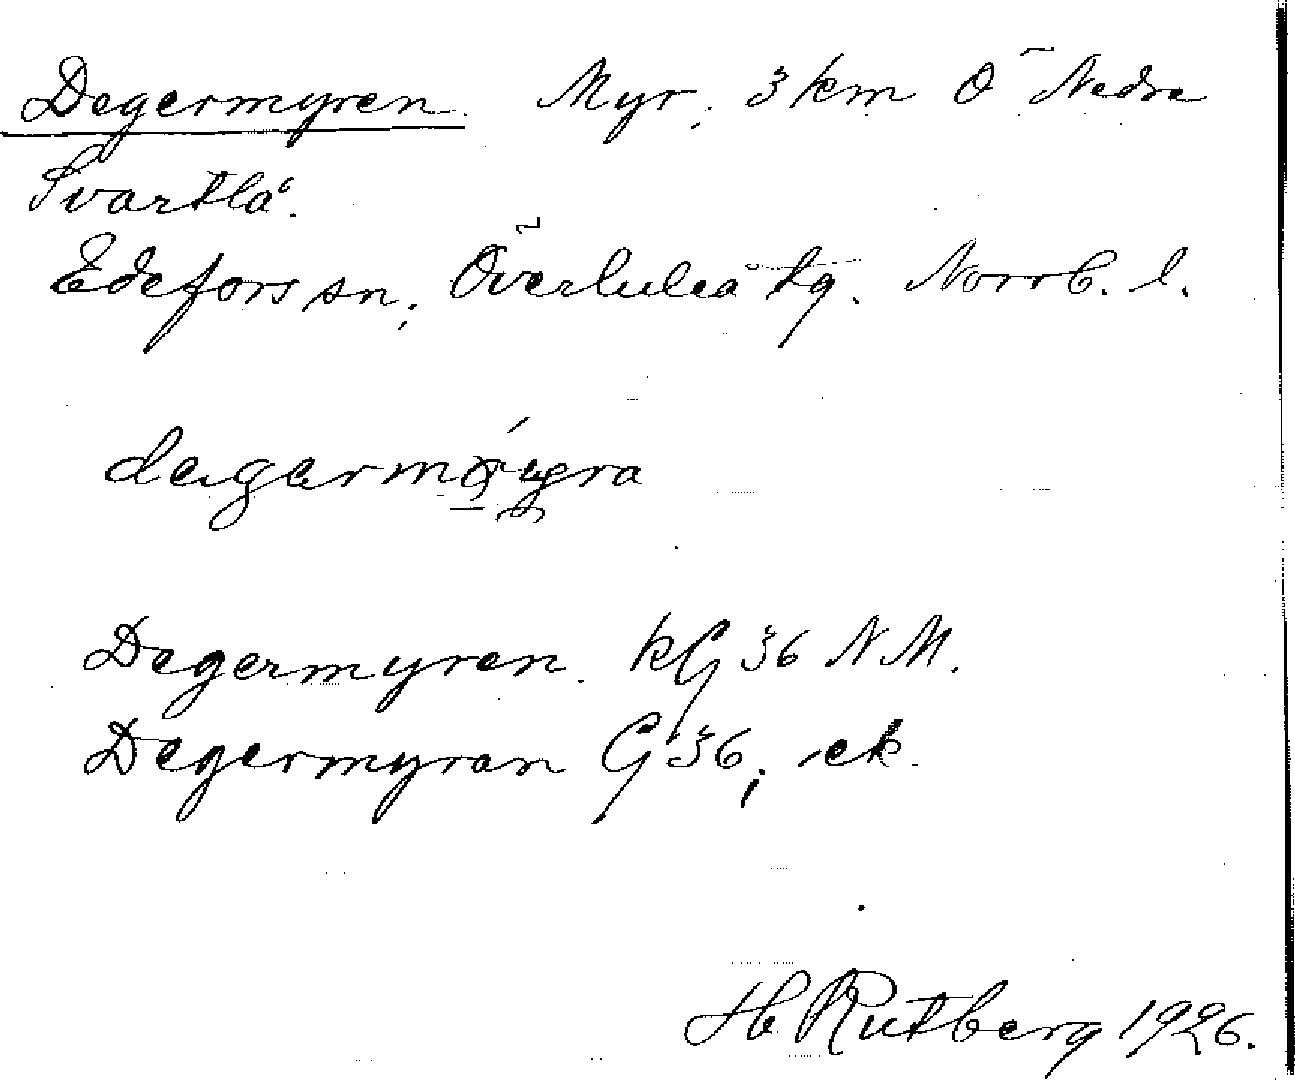 Degermyren. Myr, 3 km Ö Nedre
Svartlå.
Edefors sn, Överluleå tg. Norrb. l.
Degermyren. kG 36 N M.
Degermyran G 36, ek.
H Rutberg 1926.